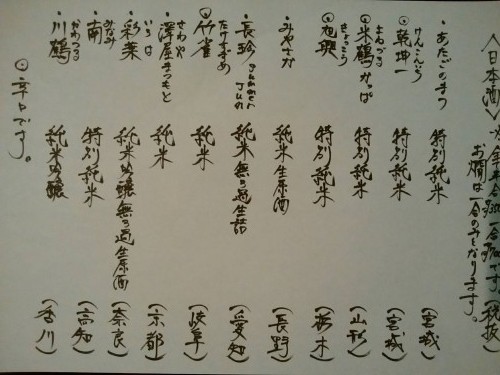 〈日本酒〉
お燗は一合のみとなります。
・あたごのまつ 特別純米 (宮城)
◉乾坤一 特別純米 (宮城)
けんこんいち
◉米鶴かっぱ 特別純米 (山形)
よねづる
◉旭興 特別純米 (栃木)
きょくこう
・みやさか 純米生原酒 (長野)
・長珍 純米無ろ過生詰 (愛知)
◉竹雀 純米 (岐阜)
たけすずめ
・澤屋まつもと 純米 (京都)
さわや
・彩葉 純米吟醸無ろ過生原酒 (奈良)
いろは
・南 特別純米 (高知)
みなみ
・川鶴 純米吟醸 (香川)
かわつる
◉辛口です。